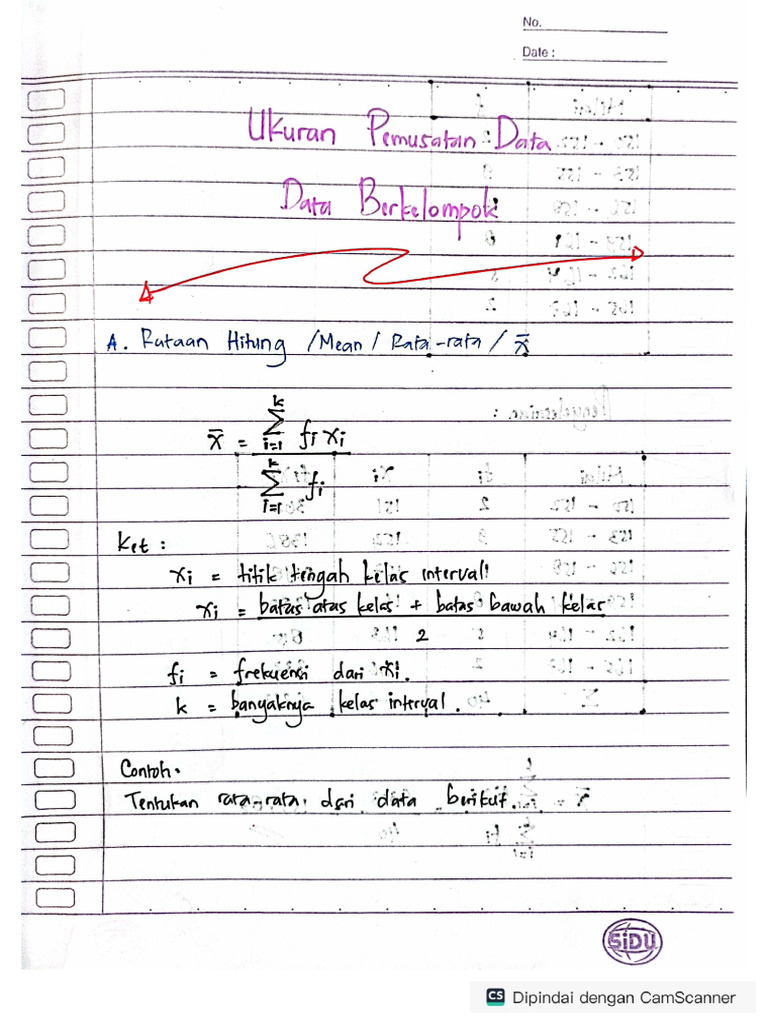 No.
Date :
Ukuran Pemusatan Data
Data Berkelompok
A. Rataan Hitung /Mean / Rata-rata / x̄
x̄ = ∑ᵏᵢ₌₁ fi xi / ∑ᵏᵢ₌₁ fi
Ket :
xi = titik tengah kelas interval
xi = batas atas kelas + batas bawah kelas
2
fi = frekuensi dari xi.
k = banyaknya kelas interval.
Contoh.
Tentukan rata-rata dari data berikut.
SiDU
CS Dipindai dengan CamScanner